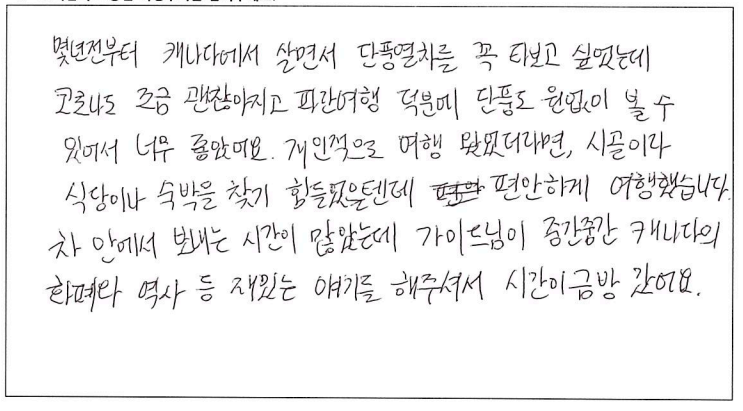 몇년전부터 캐나다에서 살면서 단풍열차를 꼭 타보고 싶었는데
코로나도 조금 괜찮아지고 파란여행 덕분에 단풍도 원없이 볼 수
있어서 너무 좋았어요. 개인적으로 여행 왔었더라면, 시골이라
식당이나 숙박을 찾기 힘들었을텐데 편안하게 여행했습니다.
차 안에서 보내는 시간이 많았는데 가이드님이 중간중간 캐나다의
화폐와 역사 등 재밌는 얘기를 해주셔서 시간이 금방 갔어요.